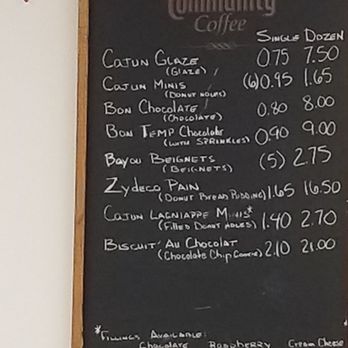 Community
Coffee
Single Dozen
Cajun Glaze 0.75 7.50
(Glaze)
Cajun Minis (6) 0.95 1.65
(Donut Holes)
Bon Chocolate 0.80 8.00
(Chocolate)
Bon Temp Chocolate 0.90 9.00
(with Sprinkles)
Bayou Beignets (5) 2.75
(Beignets)
Zydeco Pain 1.65 16.50
(Donut Bread Pudding)
Cajun Lagniappe Minis* 1.40 2.70
(Filled Donut Holes)
Biscuit Au Chocolat 2.10 21.00
(Chocolate Chip Cookie)
*Fillings Available:
Chocolate Raspberry Cream Cheese